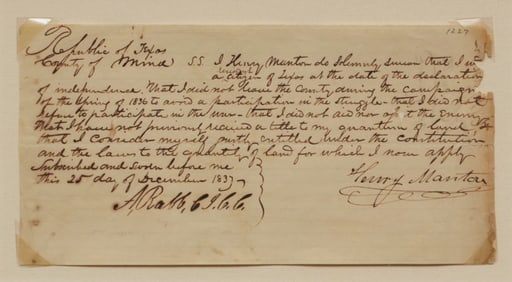 1227
Republic of Texas
County of Mina SS I Henry Manton do Solemnly swear that I was
resident
a citizen of Texas at the date of the declaration
of independence, that I did not leave the County during the campaign
of the Spring of 1836 to avoid a participation in the struggle - that I did not
refuse to participate in the war - that I did not aid nor assist the Enemy
that I have not previously received a title to my quantum of land &
that I consider myself justly entitled under the constitution
and the laws to the quantity of land for which I now apply
Subscribed and sworn before me
this 25 day of December 1837
Henry Manton